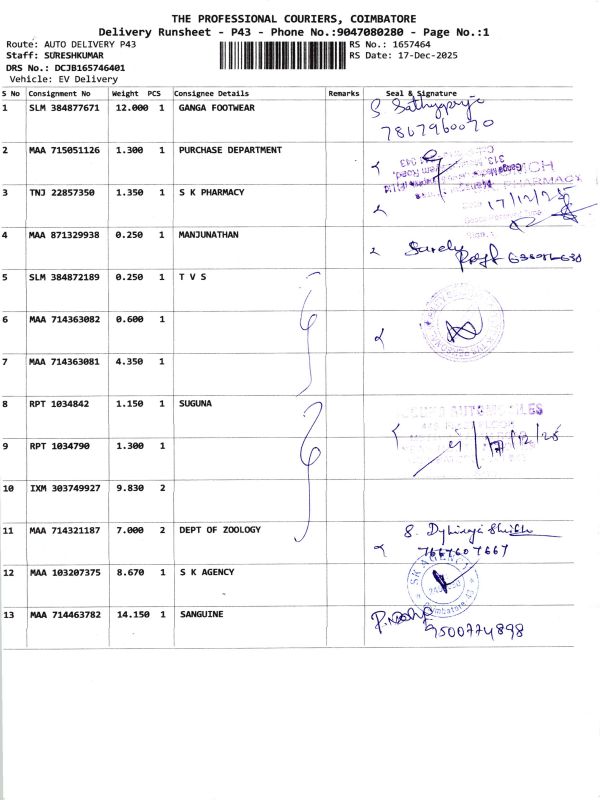 THE PROFESSIONAL COURIERS, COIMBATORE
Delivery Runsheet - P43 - Phone No.:9047080280 - Page No.:1
Route: AUTO DELIVERY P43
Staff: SURESHKUMAR
DRS No.: DCJB165746401
Vehicle: EV Delivery
RS No.: 1657464
RS Date: 17-Dec-2025
S No Consignment No Weight PCS Consignee Details Remarks Seal & Signature
1 SLM 384877671 12.000 1 GANGA FOOTWEAR
7867960070
2 MAA 715051126 1.300 1 PURCHASE DEPARTMENT
3 TNJ 22857350 1.350 1 S K PHARMACY
PHARMACY
17/12/25
4 MAA 871329938 0.250 1 MANJUNATHAN
5 SLM 384872189 0.250 1 T V S
6 MAA 714363082 0.600 1
7 MAA 714363081 4.350 1
8 RPT 1034842 1.150 1 SUGUNA
SUGUNA AUTOMOBILES
17/12/25
9 RPT 1034790 1.300 1
10 IXM 303749927 9.830 2
11 MAA 714321187 7.000 2 DEPT OF ZOOLOGY
7667607667
12 MAA 103207375 8.670 1 S K AGENCY
SK AGENCY
Coimbatore 43
13 MAA 714463782 14.150 1 SANGUINE
9500774898